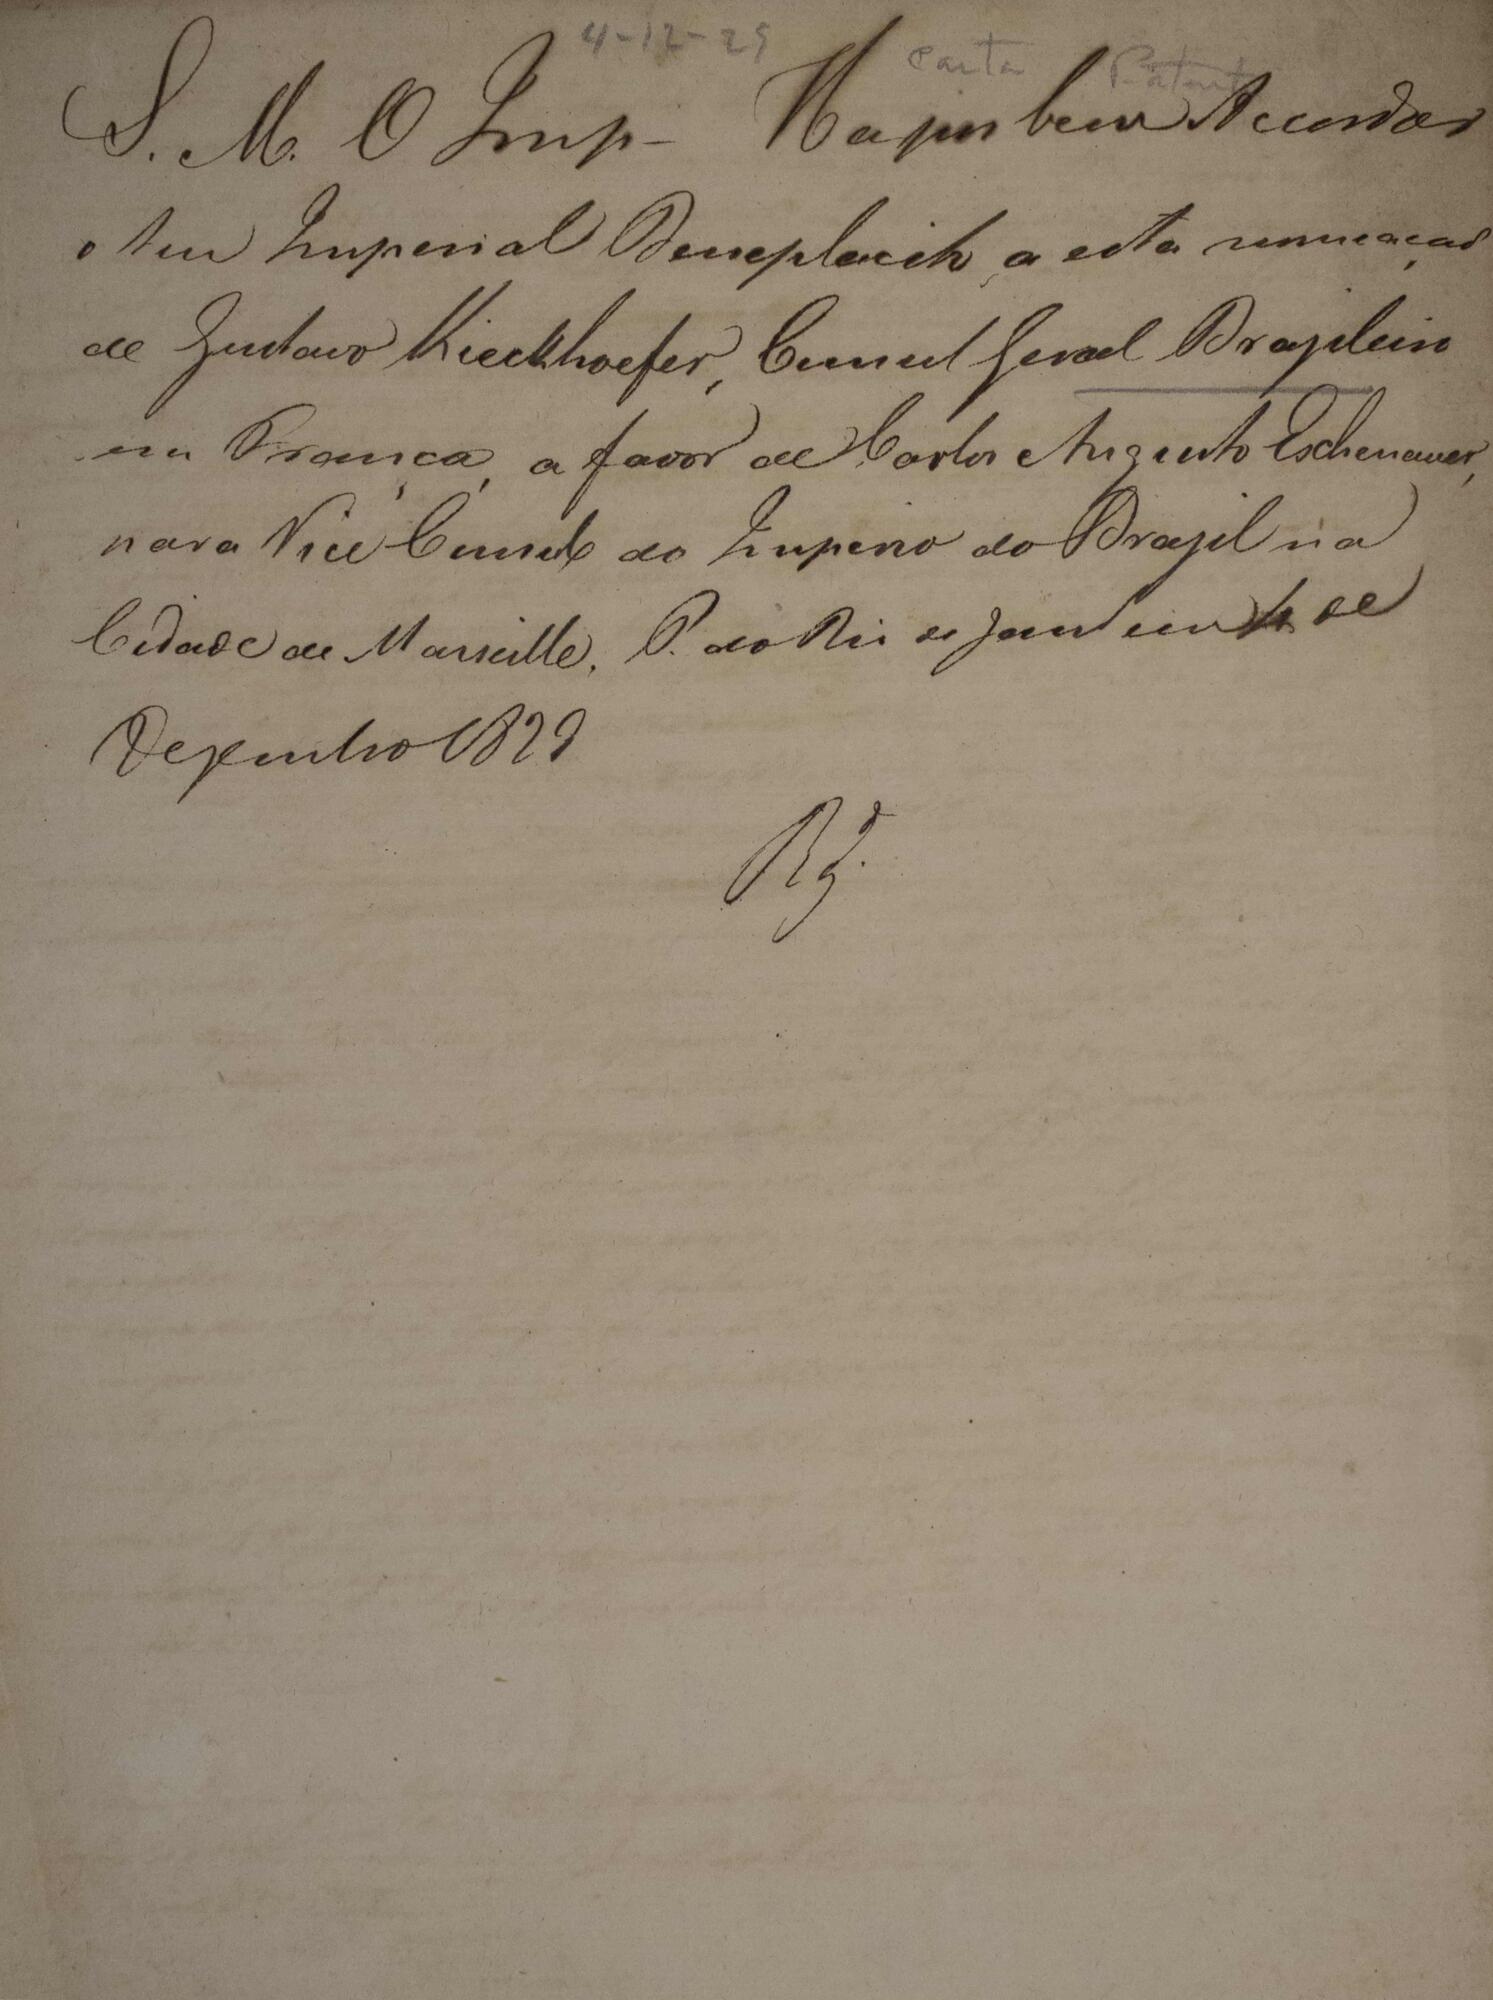 4-12-29 Carta Patente
S. M. O Imp. Haja por bem Accordar
o seu Imperial Beneplacito, a esta nomeação
de Gustavo Kieckhoefer, Consul Geral Brazileiro
em França, a favor de Carlos Augusto Eschenauer,
para Vice Consul do Imperio do Brazil na
Cidade de Marseille. P. do Rio de Janeiro 4 de
Dezembro 1829